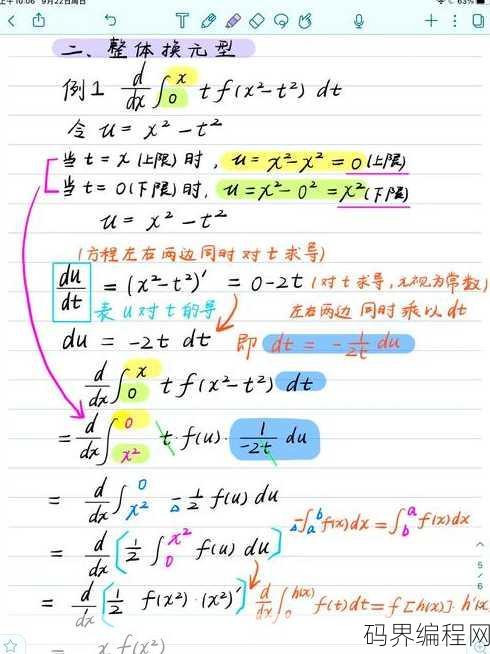 上午10:06 9月22日周日
63%
二、整体换元型
例1 d/dx ∫₀ˣ t f(x²-t²) dt
令 u = x²-t²
当 t = x (上限) 时, u = x²-x² = 0 (上限)
当 t = 0 (下限) 时, u = x²-0² = x² (下限)
u = x²-t²
(方程左右两边同时对 t 求导)
du/dt = (x²-t²)' = 0-2t (对 t 求导, x视为常数)
表 u 对 t 的导 左右两边同时乘以 dt
du = -2t dt 即 dt = -1/2t du
d/dx ∫₀ˣ t f(x²-t²) dt
= d/dx ∫_{x²}^{0} t·f(u)· 1/-2t du
= d/dx ∫_{x²}^{0} -1/2 f(u) du
-∫_a^b f(x)dx = ∫_b^a f(x)dx
= d/dx [1/2 ∫₀^{x²} f(u) du]
= d/dx [1/2 f(x²)·(x²)'] d/dx ∫₀^{h(x)} f(t)dt = f[h(x)]·h'(x
= x f(x²)
5
6
码界编程网